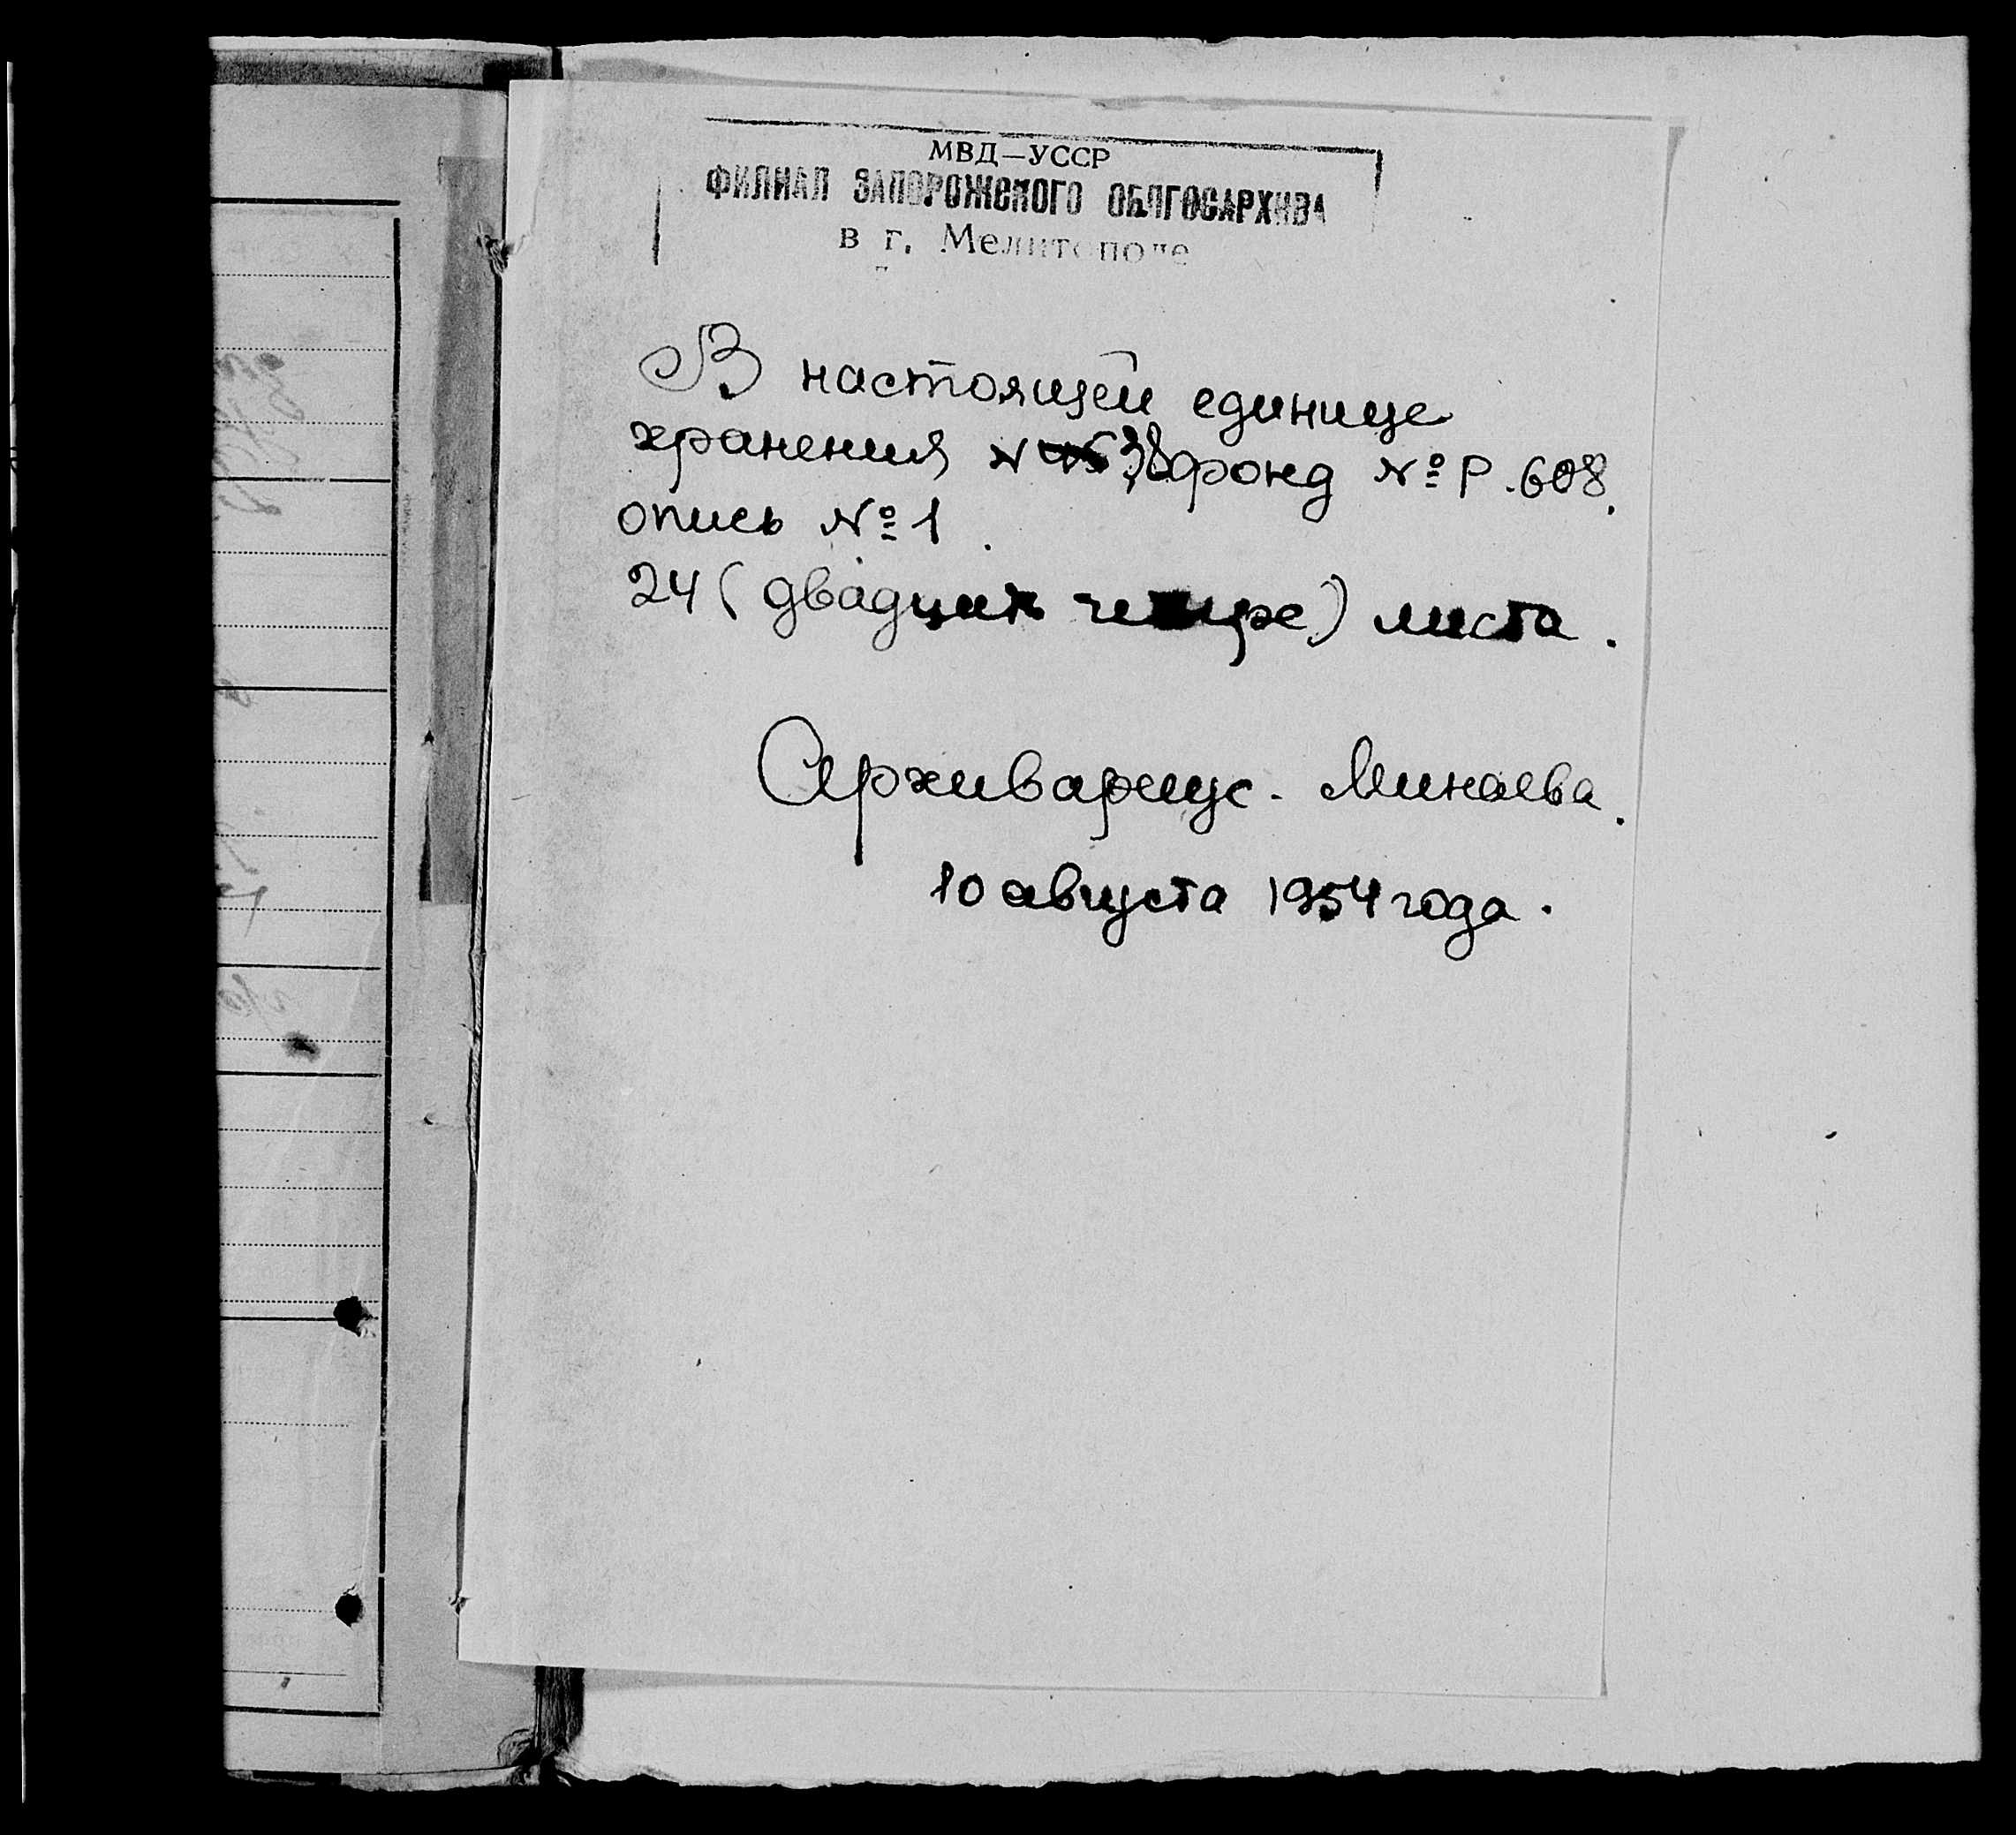 МВД—УССР
ФИЛИАЛ ЗАПОРОЖСКОГО ОБЛГОСАРХИВА
в г. Мелитополе
В настоящей единице
хранения N 38 фонд № Р.608.
опись № 1.
24 (двадцать четыре) листа.
Архивариус - Минаева.
10 августа 1954 года.